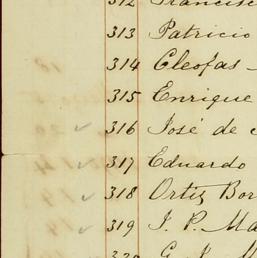 312 Francisc
313 Patricio
314 Cleofas
315 Enrique
316 José de
317 Eduardo
318 Ortiz Bor
319 J. P. Ma
320 G.